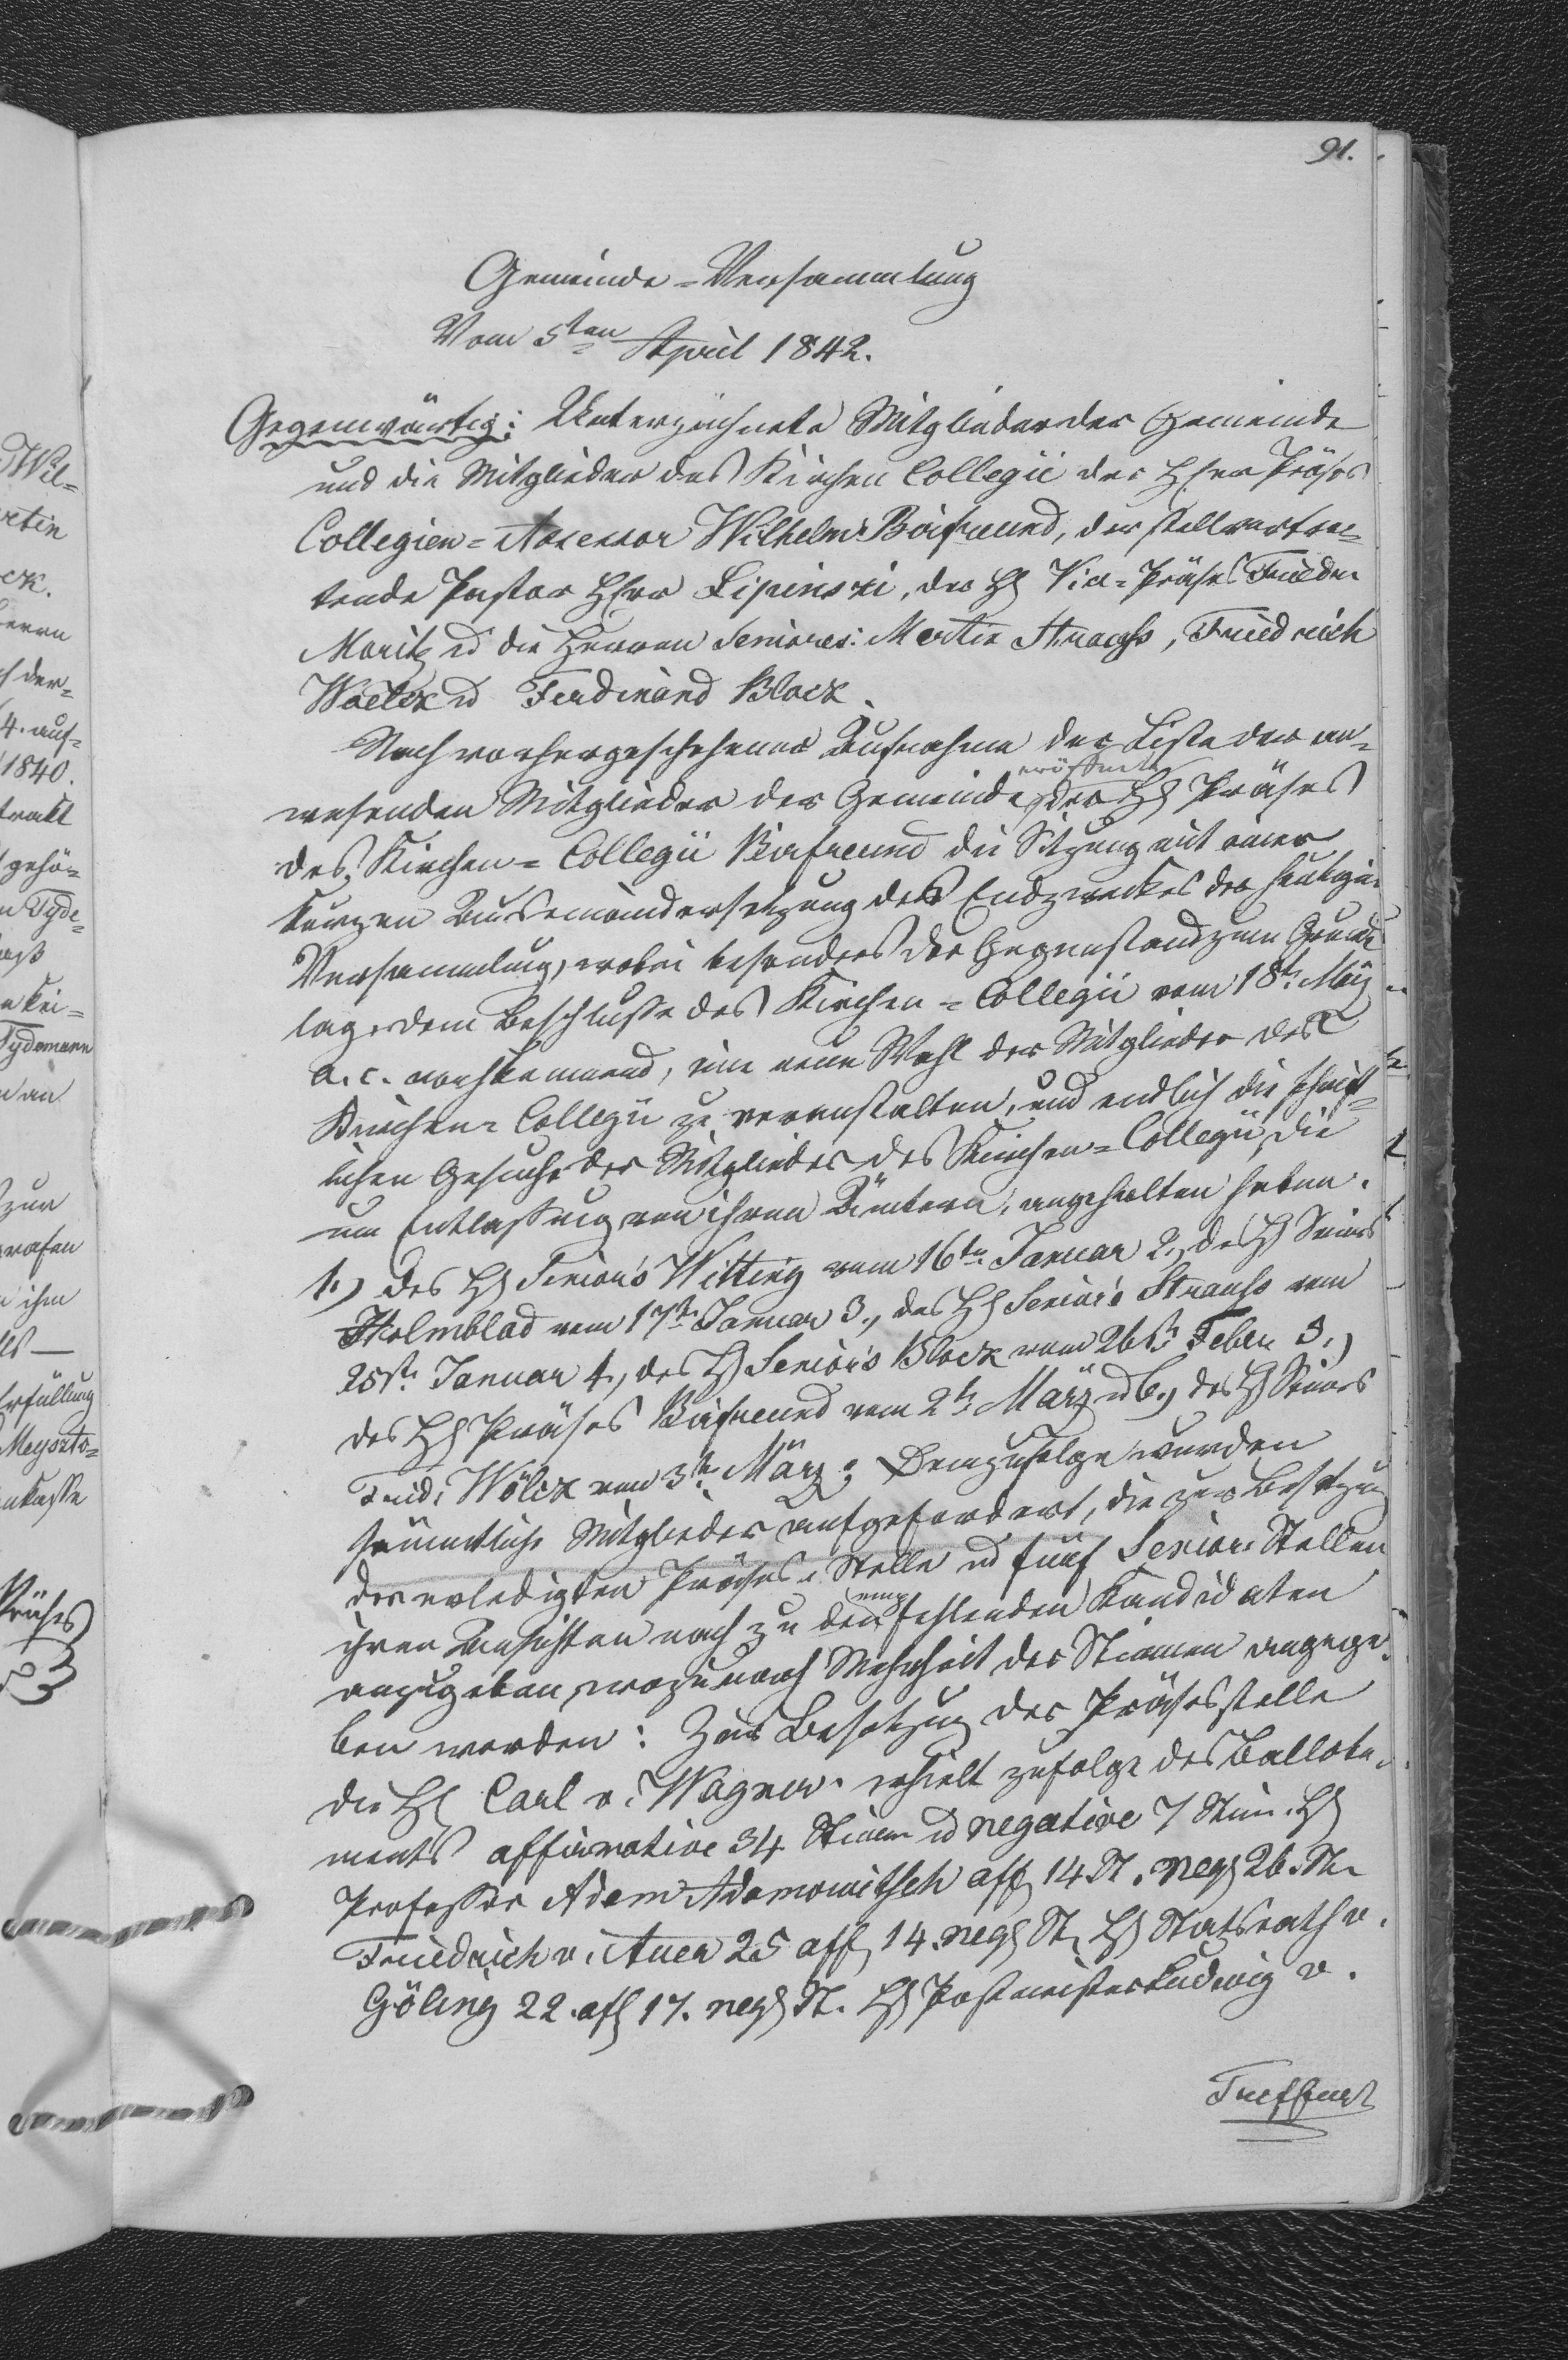 91.
Gemeinde-Versammlung
Vom 5ten April 1842.
Gegenwärtig: Unterzeichnete Mitglieder der Gemeinde
und die Mitglieder des Kirchen Collegii der Herr Präses
Collegien-Assessor Wilhelm Baifreund, der stellvertre-
tende Pastor Herr Lipinski, der H. Vice-Präses Frieder
Moritz u die Herren Seniores: Martin Strauss, Friedrich
Woelck u Ferdinand Block.
Nach vorhergeschehener Aufnahme der Liste der an-
wesenden Mitglieder der Gemeinde eröffnete der H. Präses
des Kirchen-Collegii Baifreund die Sitzung mit einer
kurzen Auseinandersetzung des Endzweckes der heutigen
Versammlung, wobei besonders der Gegenstand zum Grunde
lag, dem Beschlusse des Kirchen-Collegii vom 18t. März
a. c. nachkommend, eine neue Wahl der Mitglieder des
Kirchen-Collegii zu veranstalten, und endlich die schrift-
lichen Gesuche der Mitglieder des Kirchen-Collegii, die
um Entlassung von ihren Ämtern, angehalten haben.
1.) des H. Senior's Witting vom 16ten Januar 2., des H. Seniors
Holmblad vom 17t. Januar 3., des H. Senior's Strauss vom
25st. Januar 4., des H. Senior's Block vom 26st. Febr. 5.)
des H. Präses Baifreund vom 2t. März u 6., des H. Seniors
Frid. Wölck vom 3t. März; Demzufolge wurden
sämmtliche Mitglieder aufgefordert, die zur Besetzung
der erledigten Präses-Stelle u fünf Senior-Stellen
ihren Ansichten nach zu den fehlenden Kandidaten
anzugeben, wozu nach Mehrheit der Stimmen angege-
ben worden: Zur Besetzung der Präsesstelle
die H. Carl v. Wagner erhielt zufolge des Ballote-
ments affirmative 34 Stimen u negative 7 Stim. H.
Professor Adam Adamowitsch aff. 14. St. neg. 26. St.
Friedrich v. Auer 25 aff. 14. neg. St. H. Statsrath v.
Göling 22. aff. 17. neg. St. H. Postmeister Ludwig v.
Treffner